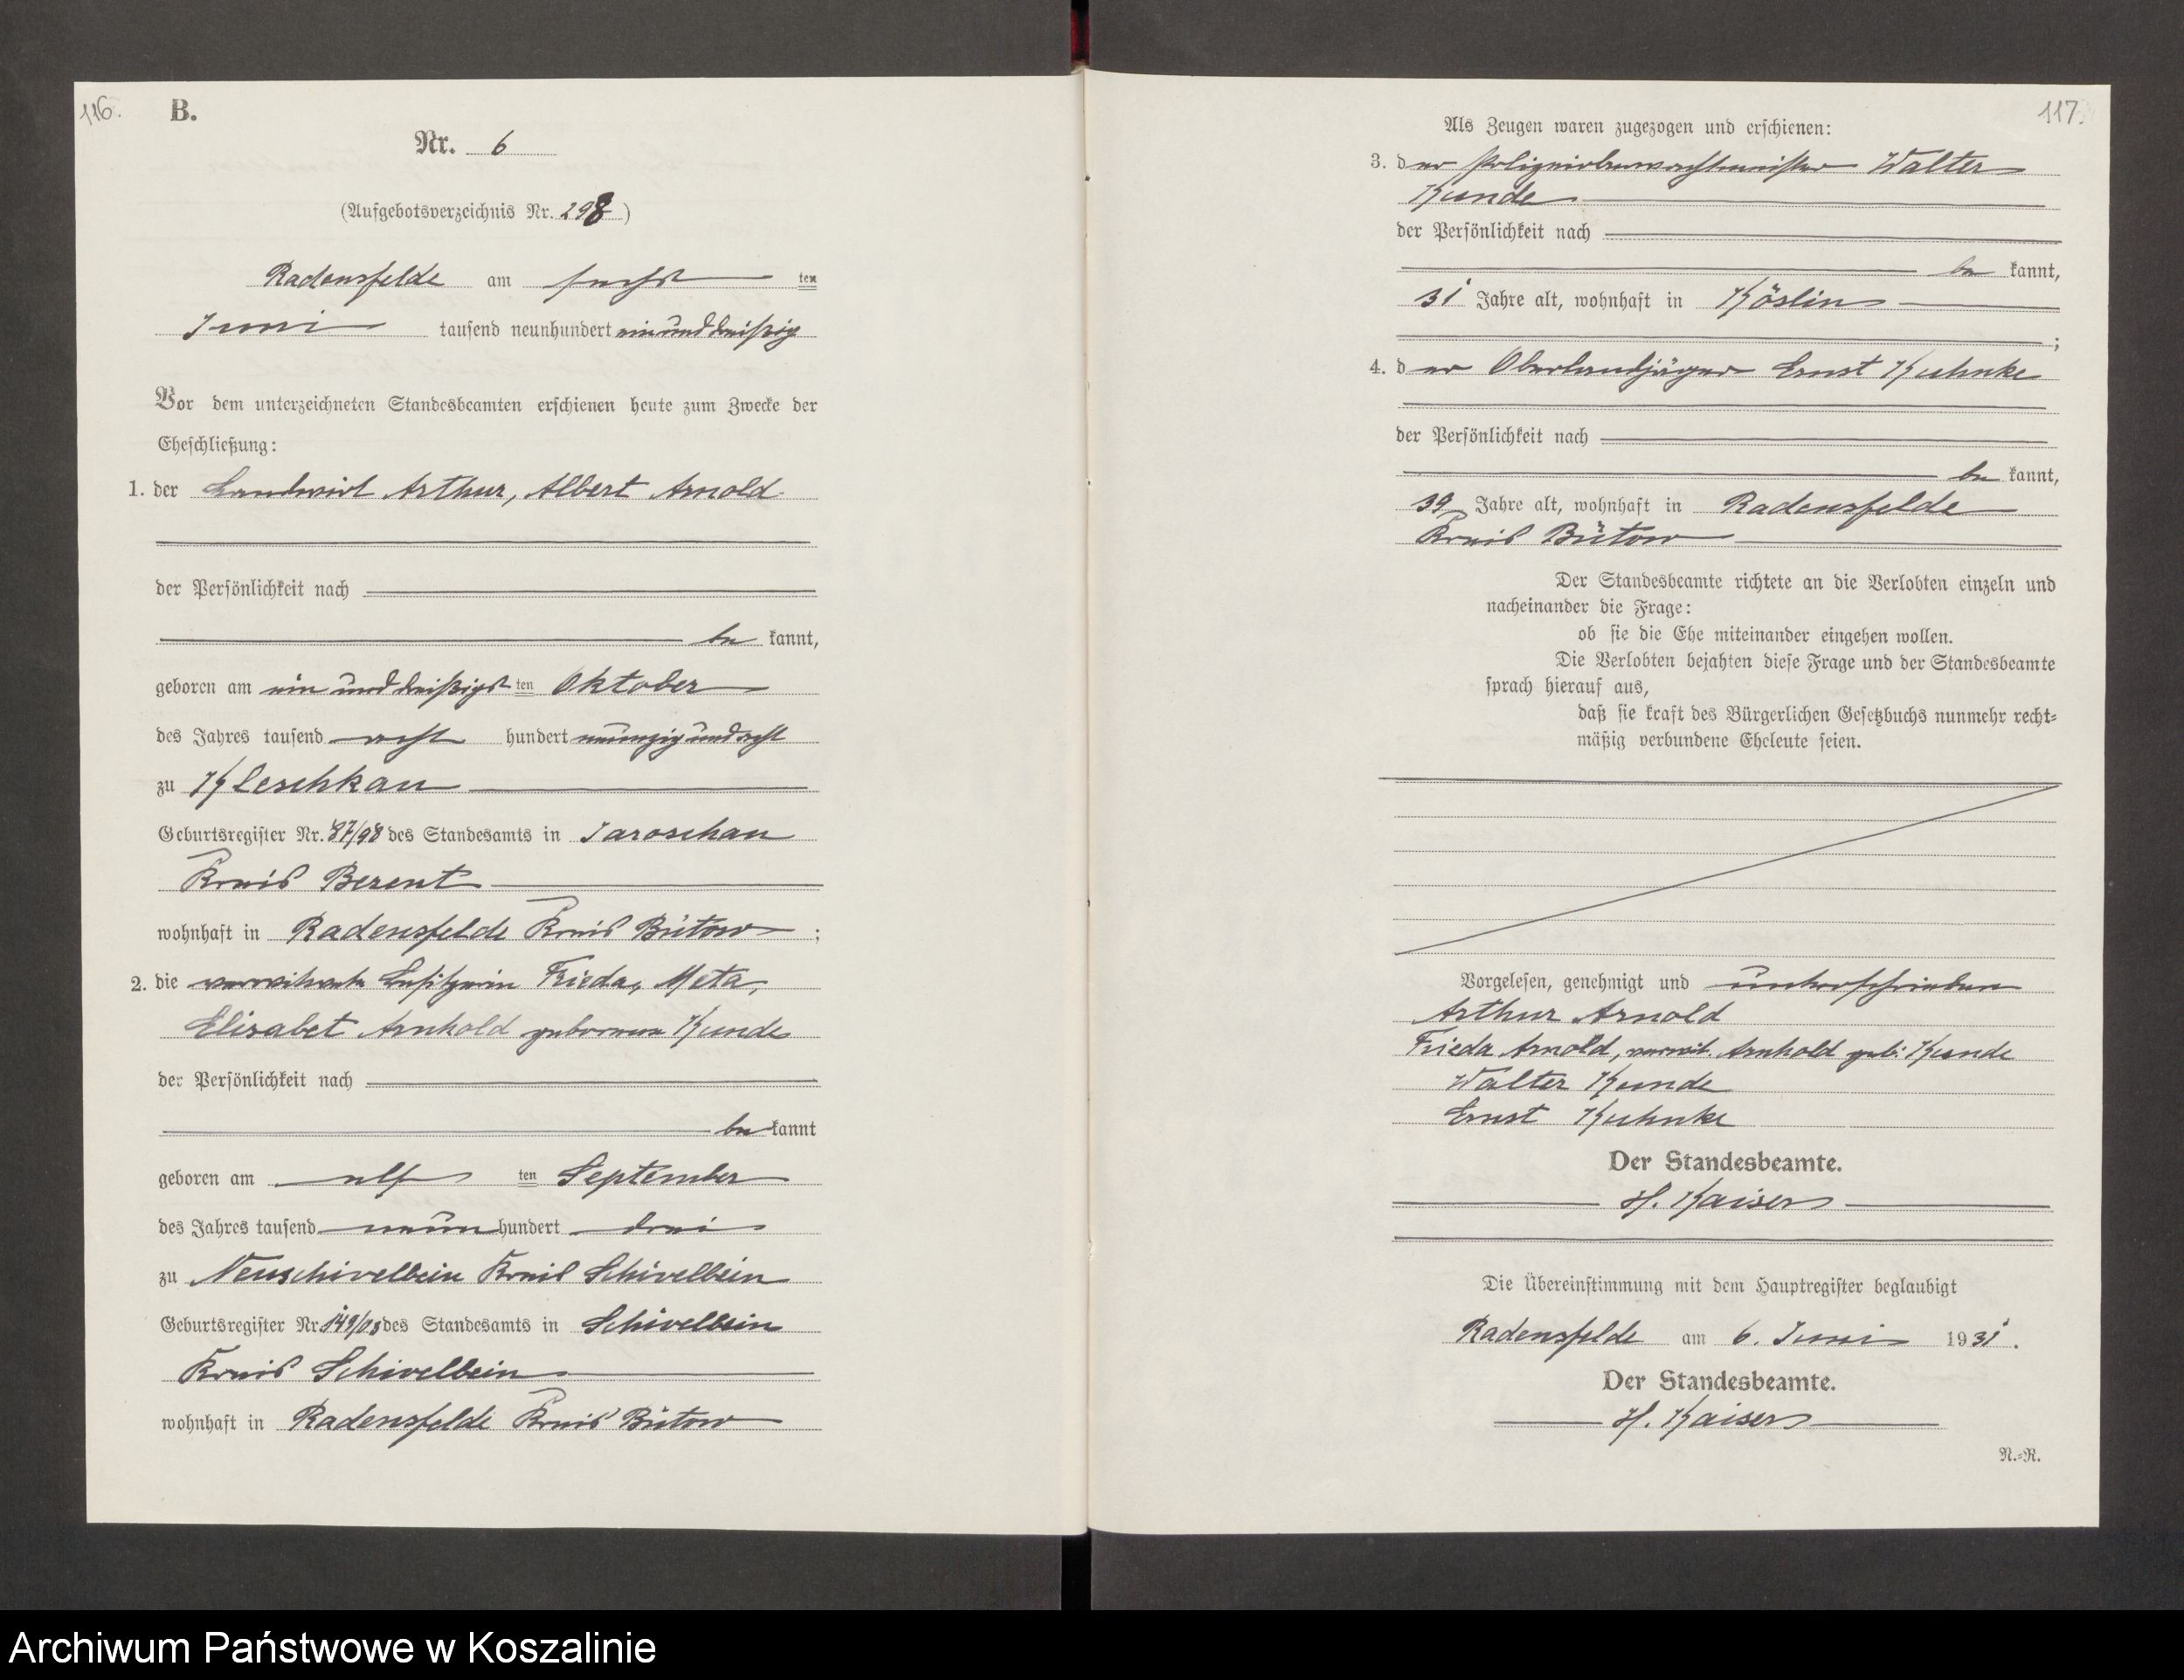 116.
B.
Nr. 6
(Aufgebotsverzeichnis Nr. 298)
Radensfelde am sechst ten
Juni tausend neunhundert einunddreißig
Vor dem unterzeichneten Standesbeamten erschienen heute zum Zwecke der
Eheschließung:
1. der Landwirt Arthur, Albert Arnold
der Persönlichkeit nach
be kannt,
geboren am einunddreißigst ten Oktober
des Jahres tausend acht hundert neunzig und acht
zu Kleschkau
Geburtsregister Nr. 87/98 des Standesamts in Jaroschau
Kreis Berent
wohnhaft in Radensfelde Kreis Bütow ;
2. die verwitwete Besitzerin Frieda, Meta,
Elisabet Arnhold geborene Kunde
der Persönlichkeit nach
be kannt
geboren am elf ten September
des Jahres tausend neun hundert drei
zu Neuschivelbein Kreis Schivelbein
Geburtsregister Nr. 149/03 des Standesamts in Schivelbein
Kreis Schivelbein
wohnhaft in Radensfelde Kreis Bütow
117.
Als Zeugen waren zugezogen und erschienen:
3. der Polizeioberwachtmeister Walter
Kunde
der Persönlichkeit nach
be kannt,
31 Jahre alt, wohnhaft in Köslin
;
4. der Oberlandjäger Ernst Kuhnke
der Persönlichkeit nach
be kannt,
39 Jahre alt, wohnhaft in Radensfelde
Kreis Bütow
Der Standesbeamte richtete an die Verlobten einzeln und
nacheinander die Frage:
ob sie die Ehe miteinander eingehen wollen.
Die Verlobten bejahten diese Frage und der Standesbeamte
sprach hierauf aus,
daß sie kraft des Bürgerlichen Gesetzbuchs nunmehr recht-
mäßig verbundene Eheleute seien.
Vorgelesen, genehmigt und unterschrieben
Arthur Arnold
Frieda Arnold, verwit. Arnhold geb: Kunde
Walter Kunde
Ernst Kuhnke
Der Standesbeamte.
H. Kaiser
Die Übereinstimmung mit dem Hauptregister beglaubigt
Radensfelde am 6. Juni 1931.
Der Standesbeamte.
H. Kaiser
N.-R.
Archiwum Państwowe w Koszalinie